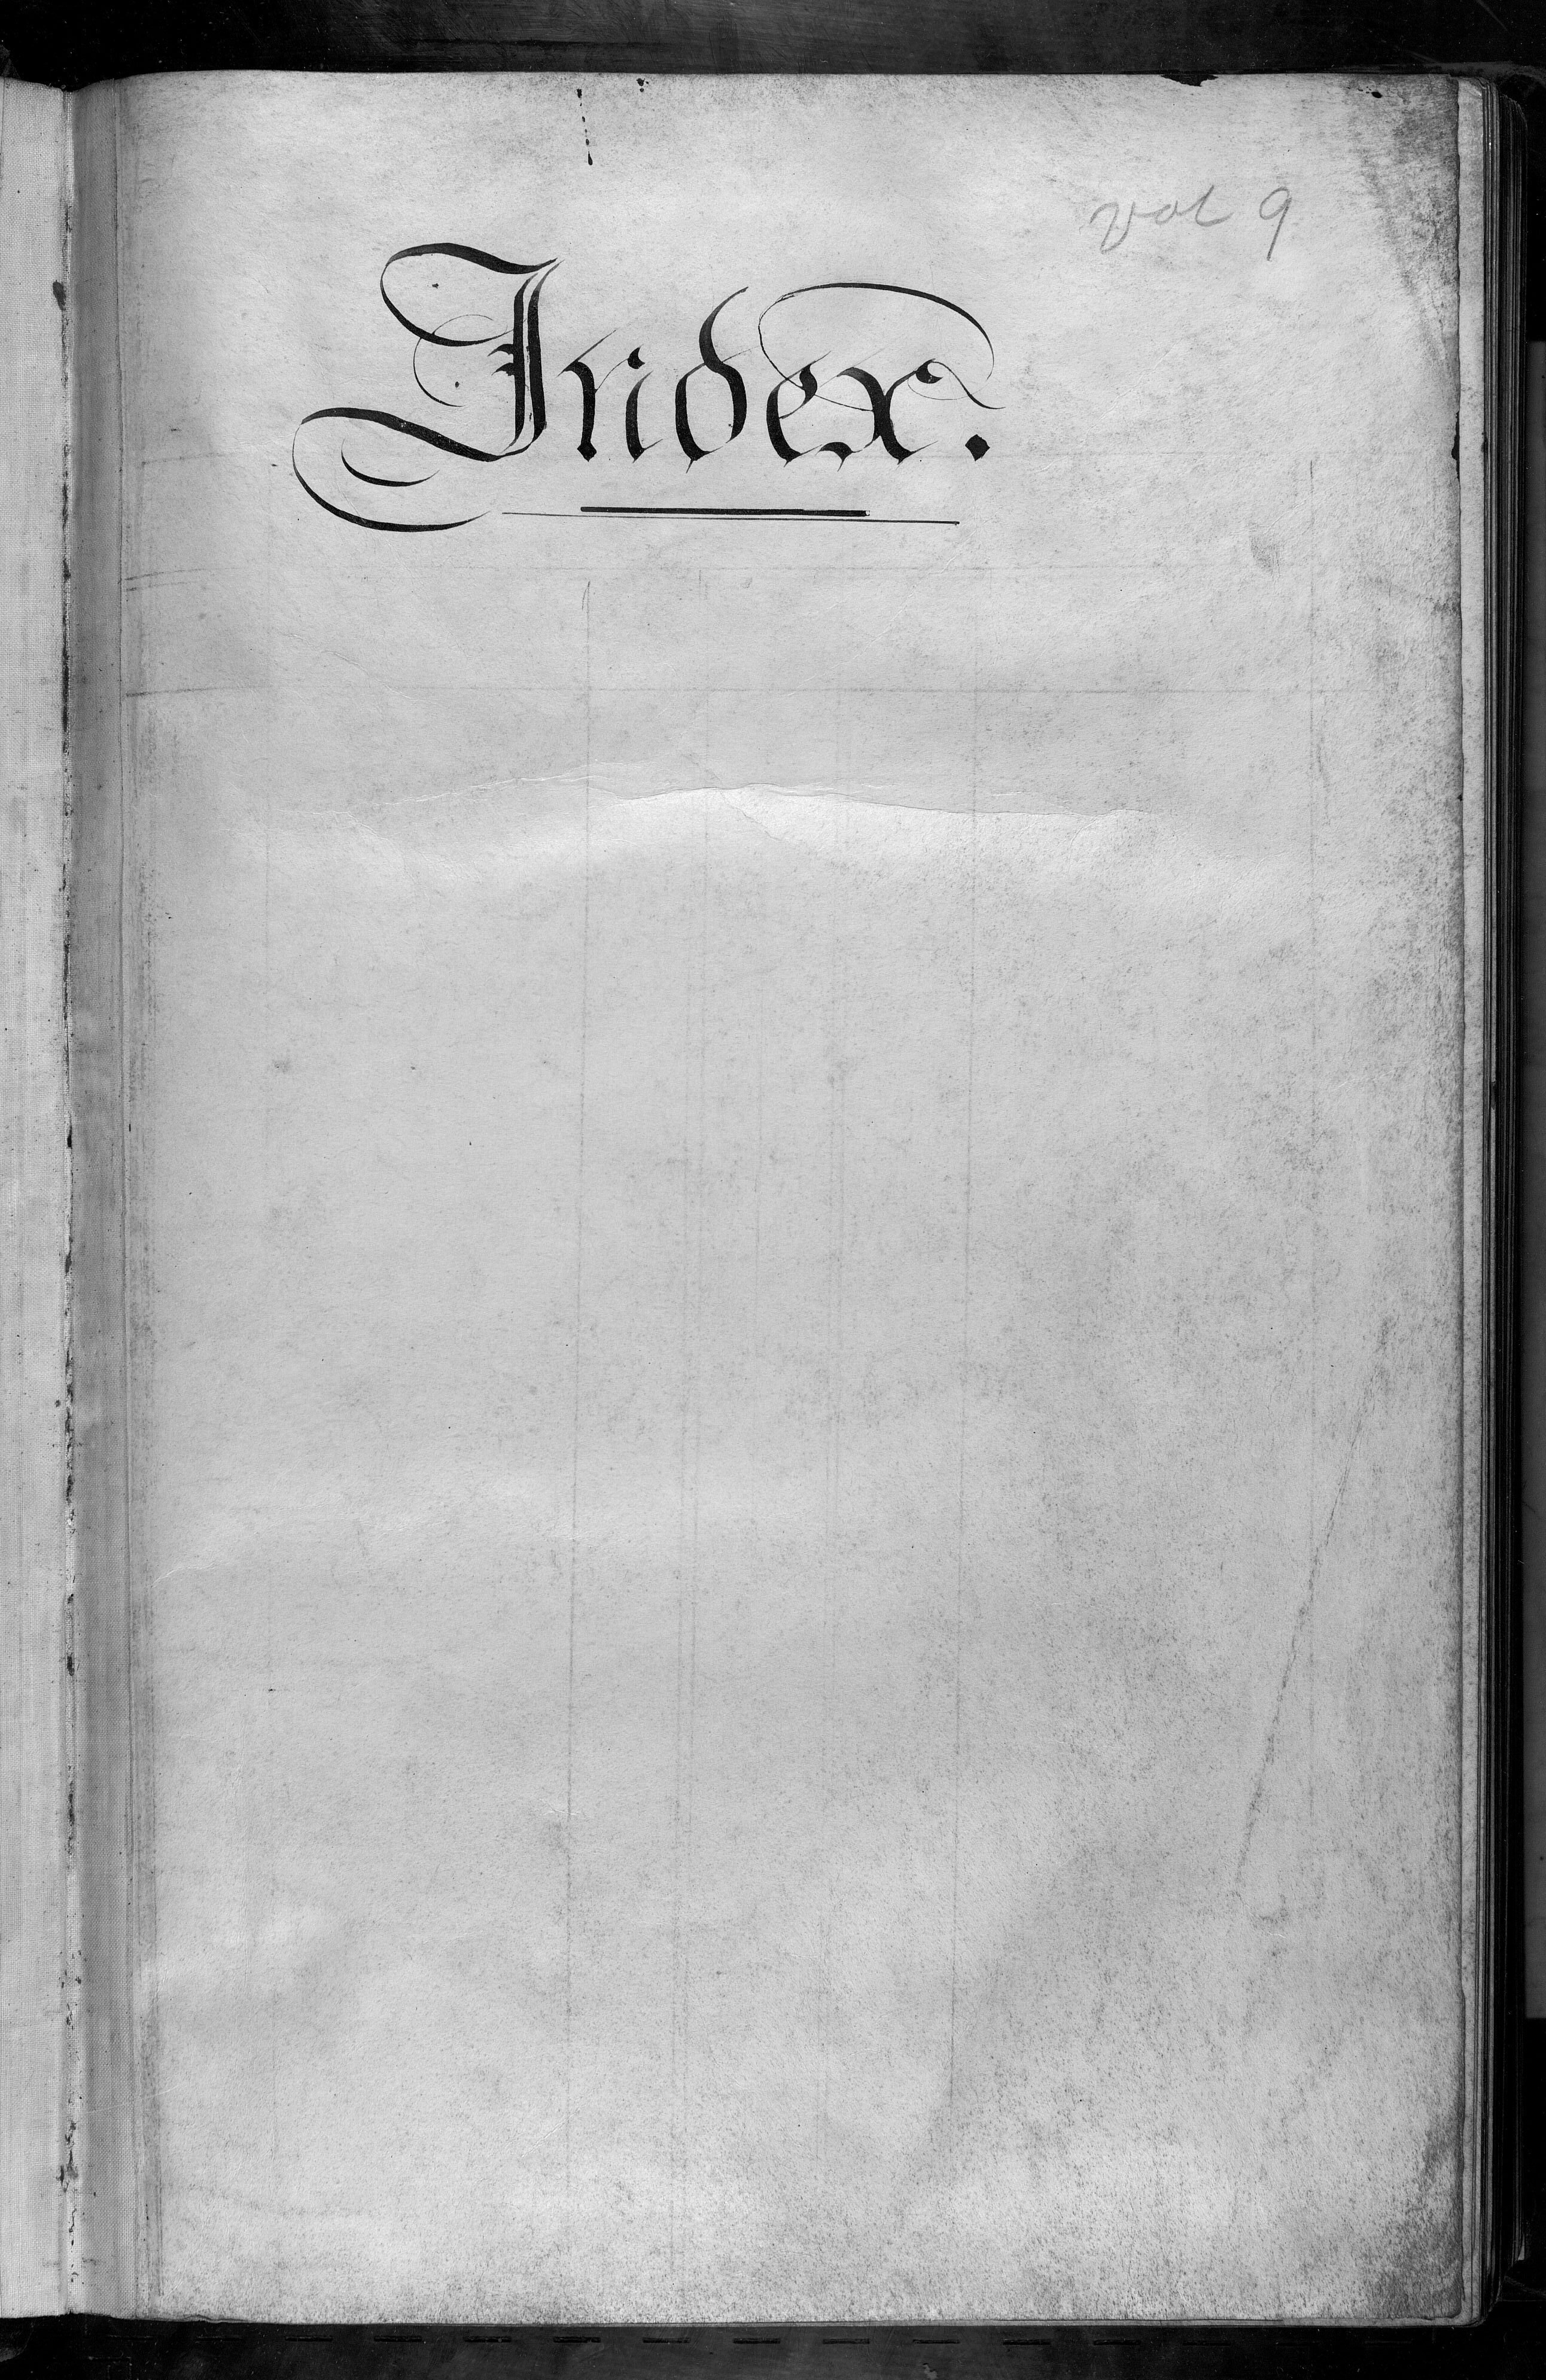 vol 9
Index.